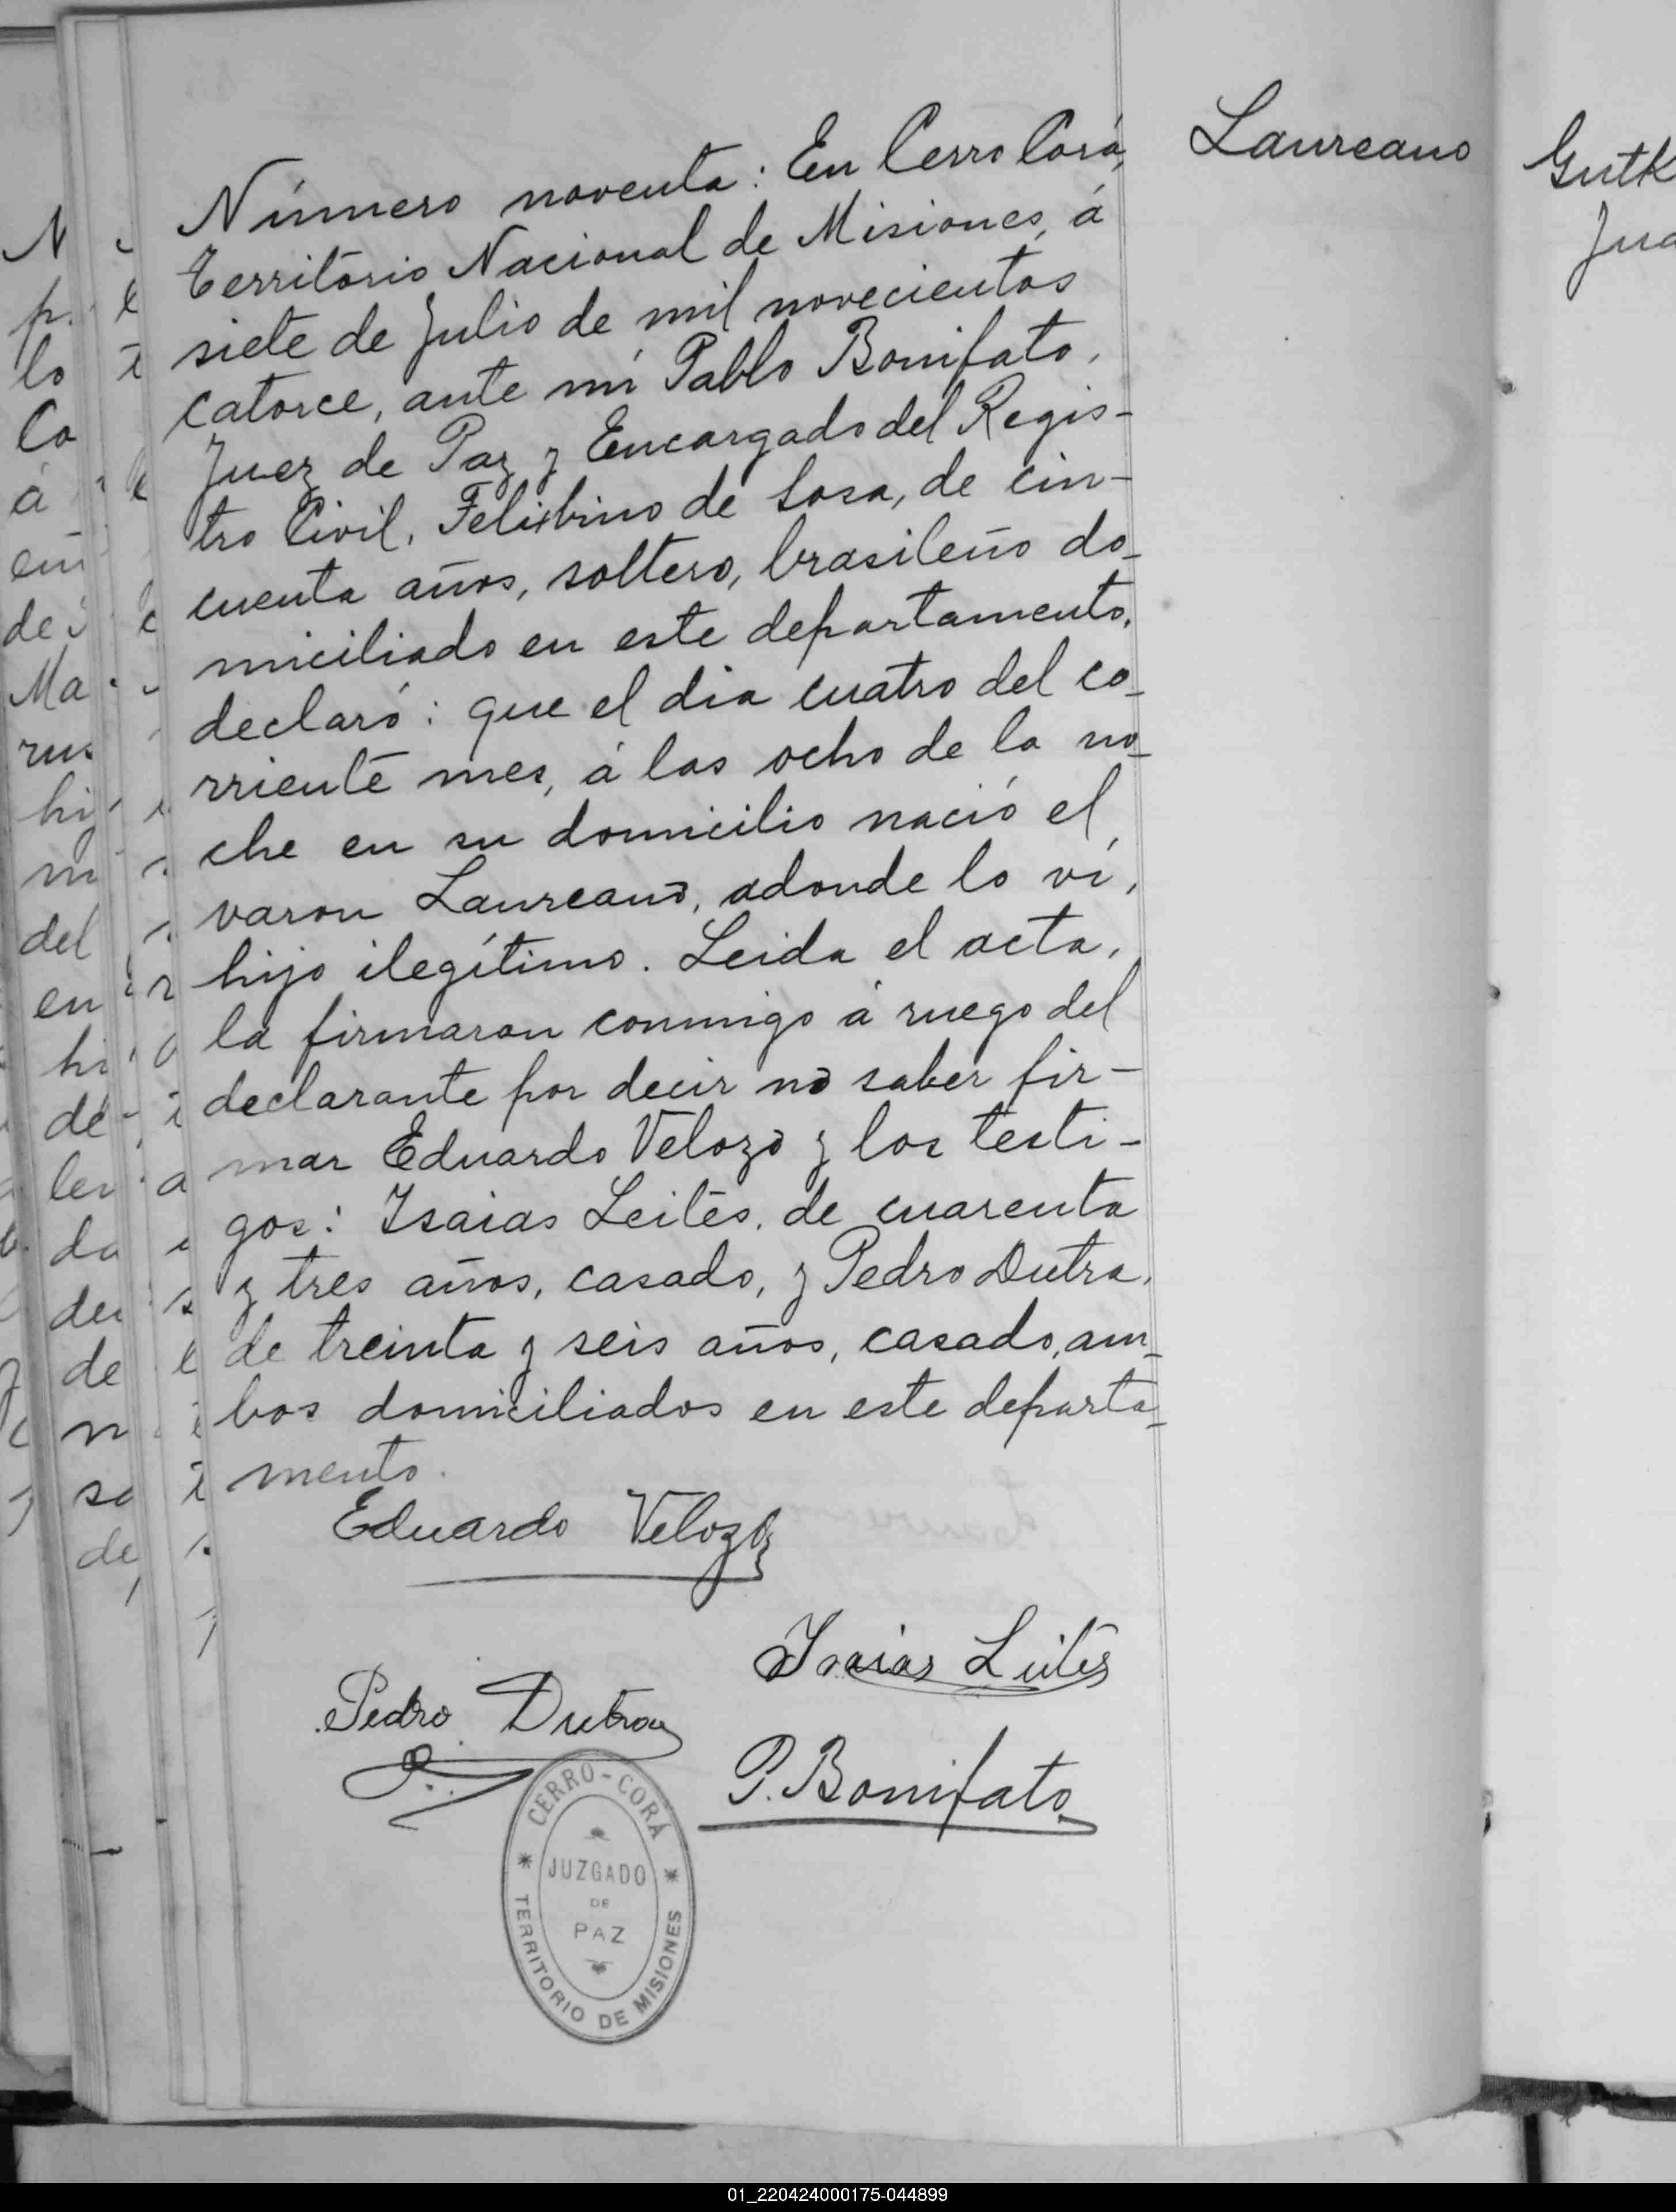 Laureano
Número noventa: En Cerro Corá,
Territorio Nacional de Misiones, á
siete de Julio de mil novecientos
catorce, ante mi Pablo Bonifato,
Juez de Paz y Encargado del Regis-
tro Civil, Felisbino de Sosa, de cin-
cuenta años, soltero, brasileño do-
miciliado en este departamento,
declaró: que el dia cuatro del co-
rriente mes, á las ocho de la no-
che en su domicilio nació el
varon Laureano, adonde lo ví,
hijo ilegítimo. Leida el acta,
la firmaron conmigo á ruego del
declarante por decir no saber fir-
mar Eduardo Velozo y los testi-
gos: Isaias Leites, de cuarenta
y tres años, casado, y Pedro Dutra,
de treinta y seis años, casado, am-
bos domiciliados en este departa-
mento.
Eduardo Velozo
Isaias Leites
Pedro Dutra
P. Bonifato
CERRO-CORÁ
JUZGADO
DE
PAZ
TERRITORIO DE MISIONES
01_220424000175-044899